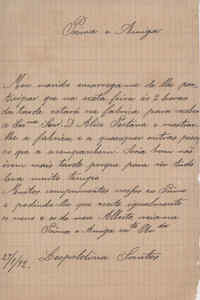 Prima e Amiga
Meu marido encarrega-me de lhe par-
ticipar que na sexta feira ás 2 horas
da tarde estará na fabrica para receber
a Exma Snra D. Alice Pestana e mostrar-
lhe a fabrica e a quaesquer outras pesso-
as que a acompanhem. Seria bom não
irem mais tarde porque para ver tudo
leva muito tempo.
Muitos cumprimentos meus ao Primo
e pedindo-lhe que aceite igualmente
os meus e os de meu Alberto, sou a
Prima e Amiga
Leopoldina